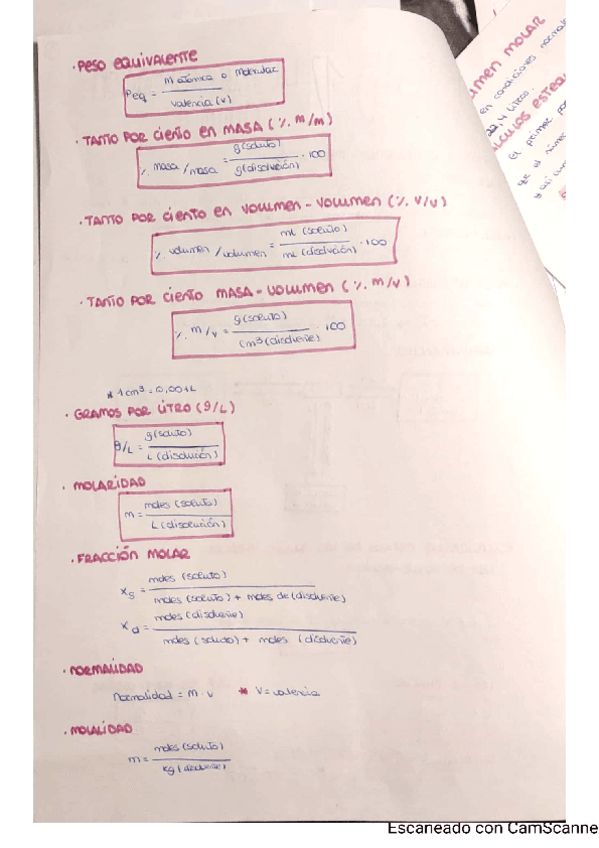 · PESO EQUIVALENTE
Peq = M atómica o Molecular / valencia (v)
· TANTO POR CIENTO EN MASA (% m/m)
% masa/masa = g(soluto) / g(disolución) · 100
· TANTO POR CIENTO EN VOLUMEN - VOLUMEN (% V/V)
% volumen/volumen = mL (soluto) / mL (disolución) · 100
· TANTO POR CIENTO MASA - VOLUMEN (% M/V)
% m/v = g(soluto) / cm³(disolvente) · 100
* 1cm³ = 0,001L
· GRAMOS POR LITRO (g/L)
g/L = g(soluto) / L (disolución)
· MOLARIDAD
m = moles (soluto) / L (disolución)
· FRACCIÓN MOLAR
Xs = moles (soluto) / moles (soluto) + moles de (disolvente)
Xd = moles (disolvente) / moles (soluto) + moles (disolvente)
· NORMALIDAD
Normalidad = M · v * V = valencia
· MOLALIDAD
m = moles (soluto) / kg (disolvente)
UMEN MOLAR
en condiciones normale
22,4 litros.
LCULOS ESTEQ
El primer pa
que el núme
Escaneado con CamScanne